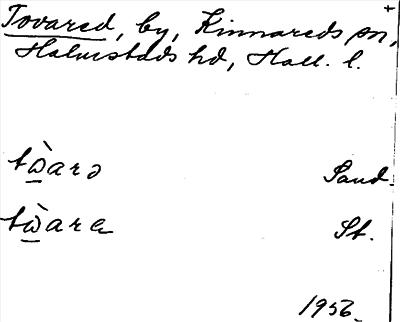 Tovared, by, Kinnareds sn,
Halmstads hd, Hall. l.
tẁarə Sand.
tẁara St.
1956.